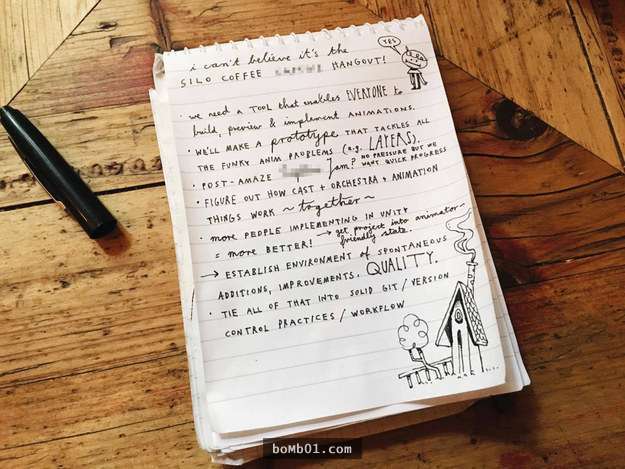 i can't believe it's the
SILO COFFEE HANGOUT!
YES
• WE NEED A TOOL that enables EVERYONE to
build, preview & implement ANIMATIONS.
• WE'LL MAKE A prototype THAT TACKLES ALL
THE FUNKY ANIM PROBLEMS (e.g. LAYERS).
• POST-AMAZE Jam? NO PRESSURE BUT WE
WANT QUICK PROGRESS
• FIGURE OUT HOW CAST + ORCHESTRA + ANIMATION
THINGS WORK ~together~
• MORE PEOPLE IMPLEMENTING IN UNITY
= MORE BETTER! → get project into animator-
friendly state.
→ ESTABLISH ENVIRONMENT OF SPONTANEOUS
ADDITIONS, IMPROVEMENTS. QUALITY.
• TIE ALL OF THAT INTO SOLID GIT/VERSION
CONTROL PRACTICES/WORKFLOW
boMb01.com